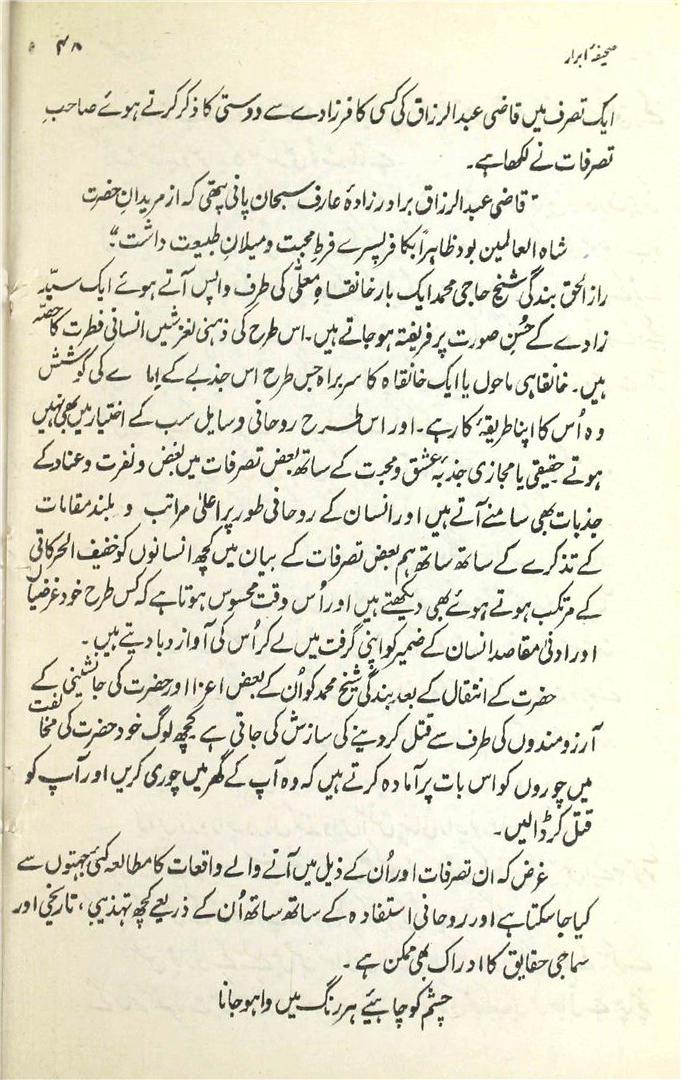 صحیفۂ ابرار
۴۸
ایک تصرف میں قاضی عبدالرزاق کی کسی کافرزادے سے دوستی کا ذکر کرتے ہوئے صاحبِ
تصرفات نے لکھا ہے۔
"قاضی عبدالرزاق برادر زادۂ عارف سبحان پانی پتی کہ از مریدانِ حضرت
شاہ العالمین بود ظاہراً بکافر پسرے فرطِ محبت و میلانِ طبیعت داشت"
راز الحق بندگی شیخ حاجی محمد ایک بار خانقاہِ معلّٰی کی طرف واپس آتے ہوئے ایک سیّد
زادے کے حُسنِ صورت پر فریفتہ ہوجاتے ہیں۔ اس طرح کی ذہنی لغزشیں انسانی فطرت کا حصّہ
ہیں۔ خانقاہی ماحول یا ایک خانقاہ کا سربراہ جس طرح اس جذبے کے امالے کی کوشش
وہ اُس کا اپنا طریقۂ کار ہے۔ اور اس طرح روحانی وسایل سب کے اختیار میں بھی نہیں
ہوتے حقیقی یا مجازی جذبۂ عشق و محبت کے ساتھ بعض تصرفات میں بغض و نفرت و عناد کے
جذبات بھی سامنے آتے ہیں اور انسان کے روحانی طور پر اعلیٰ مراتب و بلند مقامات
کے تذکرے کے ساتھ ساتھ ہم بعض تصرفات کے بیان میں کچھ انسانوں کو خفیف الحرکاتی
کے مرتکب ہوتے ہوئے بھی دیکھتے ہیں اور اُس وقت محسوس ہوتا ہے کہ کس طرح خود غرضیاں
اور ادنیٰ مقاصد انسان کے ضمیر کو اپنی گرفت میں لے کر اُس کی آواز دبا دیتے ہیں۔
حضرت کے انتقال کے بعد بندگی شیخ محمد کو اُن کے بعض اعزا اور حضرت کی جانشینی کے
آرزومندوں کی طرف سے قتل کر دینے کی سازش کی جاتی ہے کچھ لوگ خود حضرت کی مخالفت
میں چوروں کو اس بات پر آمادہ کرتے ہیں کہ وہ آپ کے گھر میں چوری کریں اور آپ کو
قتل کر ڈالیں۔
غرض کہ ان تصرفات اور اُن کے ذیل میں آنے والے واقعات کا مطالعہ کئی جہتوں سے
کیا جاسکتا ہے اور روحانی استفادہ کے ساتھ ساتھ اُن کے ذریعے کچھ تہذیبی، تاریخی اور
سماجی حقایق کا ادراک بھی ممکن ہے۔
چشم کو چاہیئے ہر رنگ میں وا ہو جانا